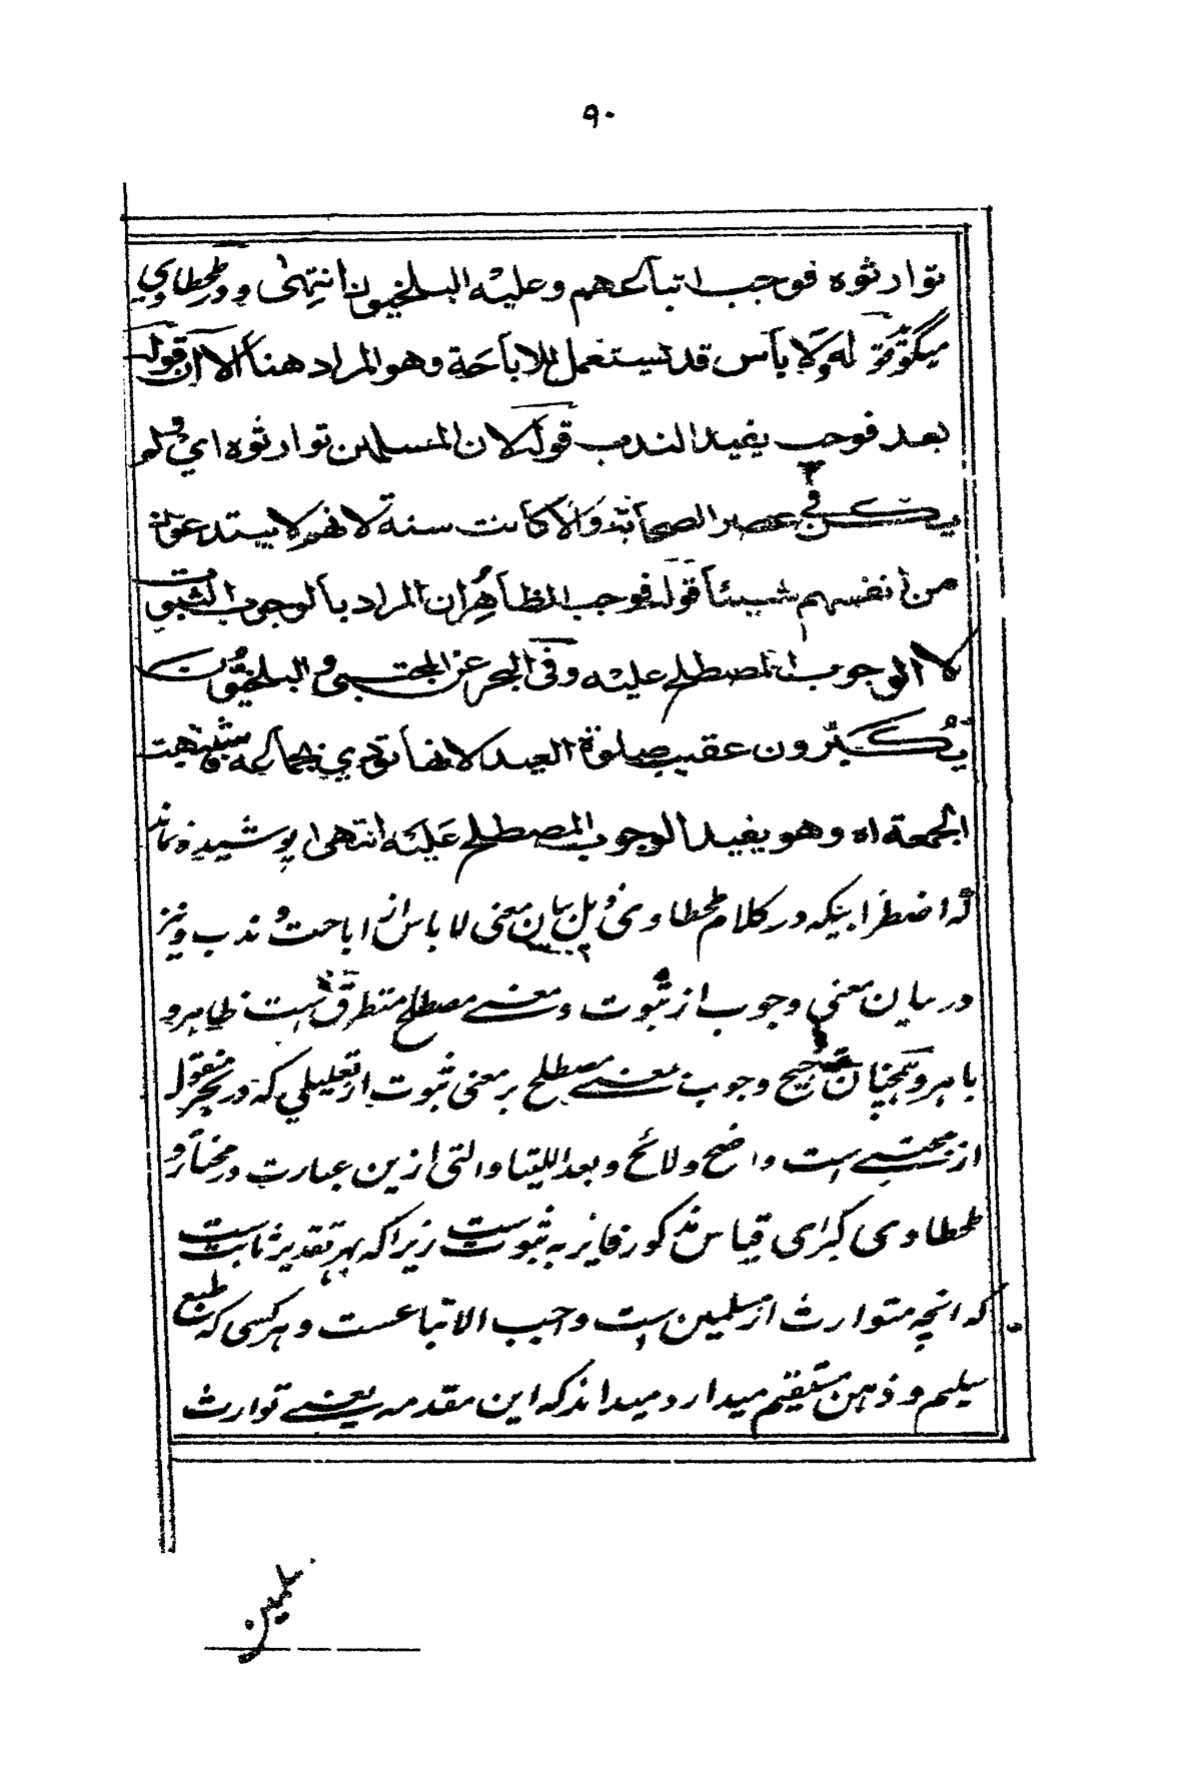 ۹۰
توارثوه فوجب اتباعهم وعليه البلخيون انتهى ودر طحطاوي
ميگويد قوله ولا بأس قد تستعمل للاباحة وهو المراد هنا الا ان قوله
بعد فوجب يفيد الندب قوله لان المسلمين توارثوه اي ولو لم
يكن في عصر الصحابة والا كانت سنة لانهم لا يبتدعون
من انفسهم شيئا قوله فوجب الظاهر ان المراد بالوجوب الثبوت
لا الوجوب المصطلح عليه وفى البحر عن المجتبى والبلخيون
يكبرون عقيب صلوة العيد لانها تؤدي بجماعة فاشبهت
الجمعة اه وهو يفيد الوجوب المصطلح عليه انتهى پوشيده نماند
كه اضطرابيكه در كلام طحطاوى ذيل بيان معنى لا باس از اباحت و ندب ونيز
در بيان معنى وجوب از ثبوت و معنى مصطلح متطرق است ظاهرو
باهر و همچنان ترجيح وجوب بمعنى مصطلح بر معنى ثبوت از تعليلي كه در بحر منقول
از مجتبى است واضح ولائح وبعد اللتيا والتى ازين عبارت در مختار و
طحطاوى كبراى قياس مذكور فايز به ثبوت است زيرا كه بهر تقدير ثابت است
كه انچه متوارث از مسلمين است واجب الاتباعست و هر كسى كه طبع
سليم و ذهن مستقيم ميدارد ميداند كه اين مقدمه يعنى توارث